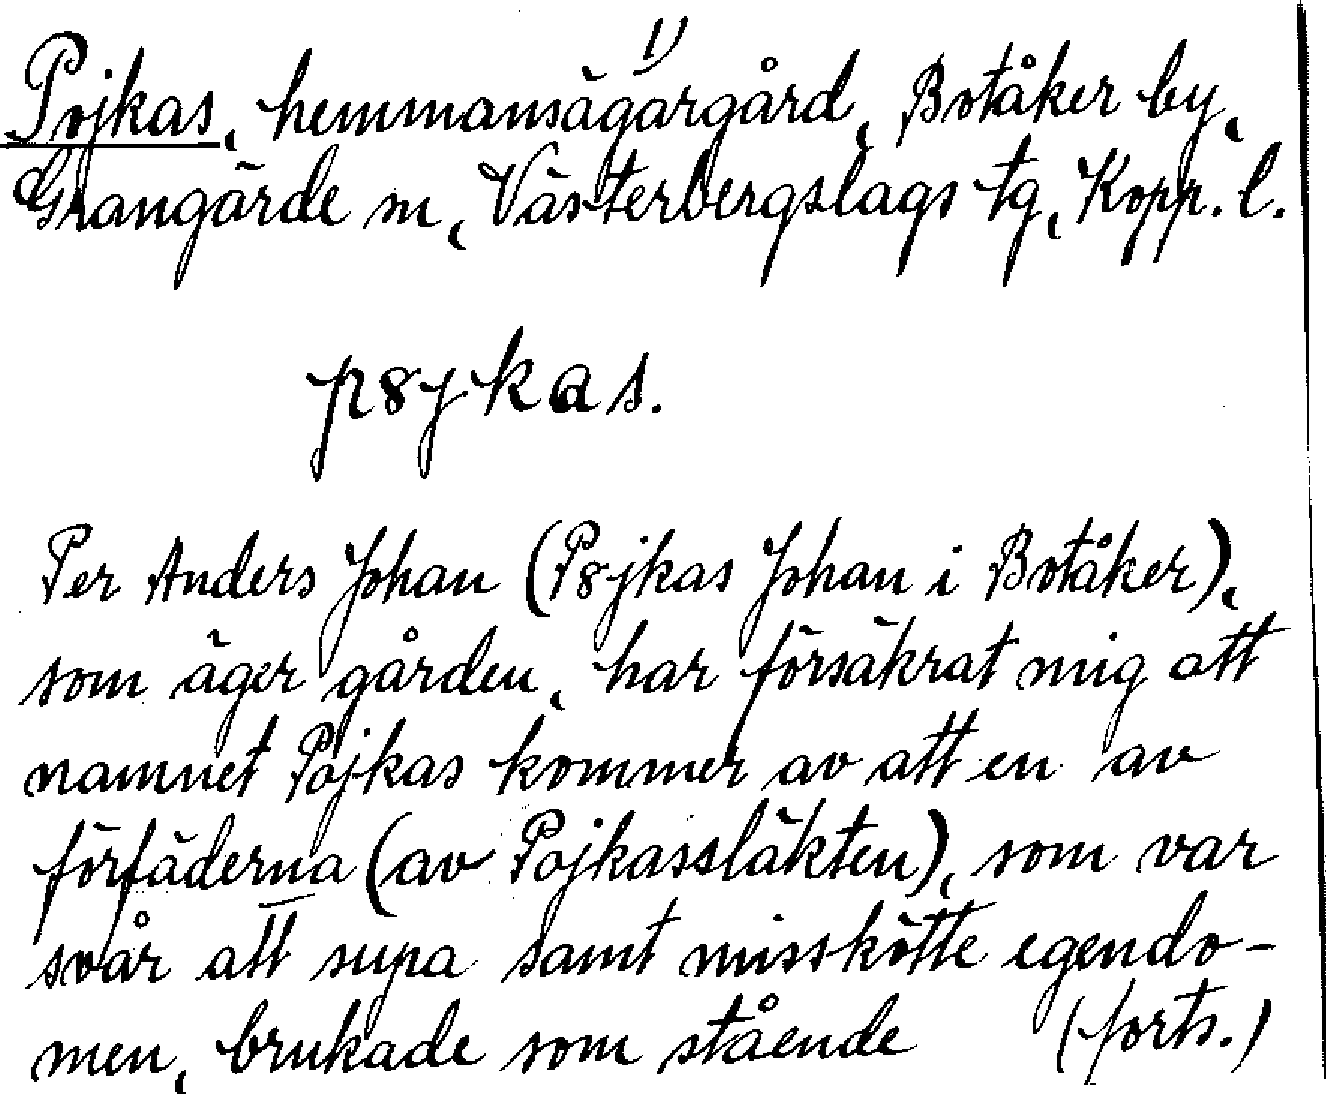 1)
Pojkas, hemmansägargård, Botåker by,
Grangärde sn, Västerbergslags tg, Kopp. l.
p8jkas.
Per Anders Johan (P8jkas Johan i Botåker),
som äger gården, har försäkrat mig att
namnet Pojkas kommer av att en av
förfäderna (av Pojkassläkten), som var
svår att supa samt misskötte egendo-
men, brukade som stående (forts.)